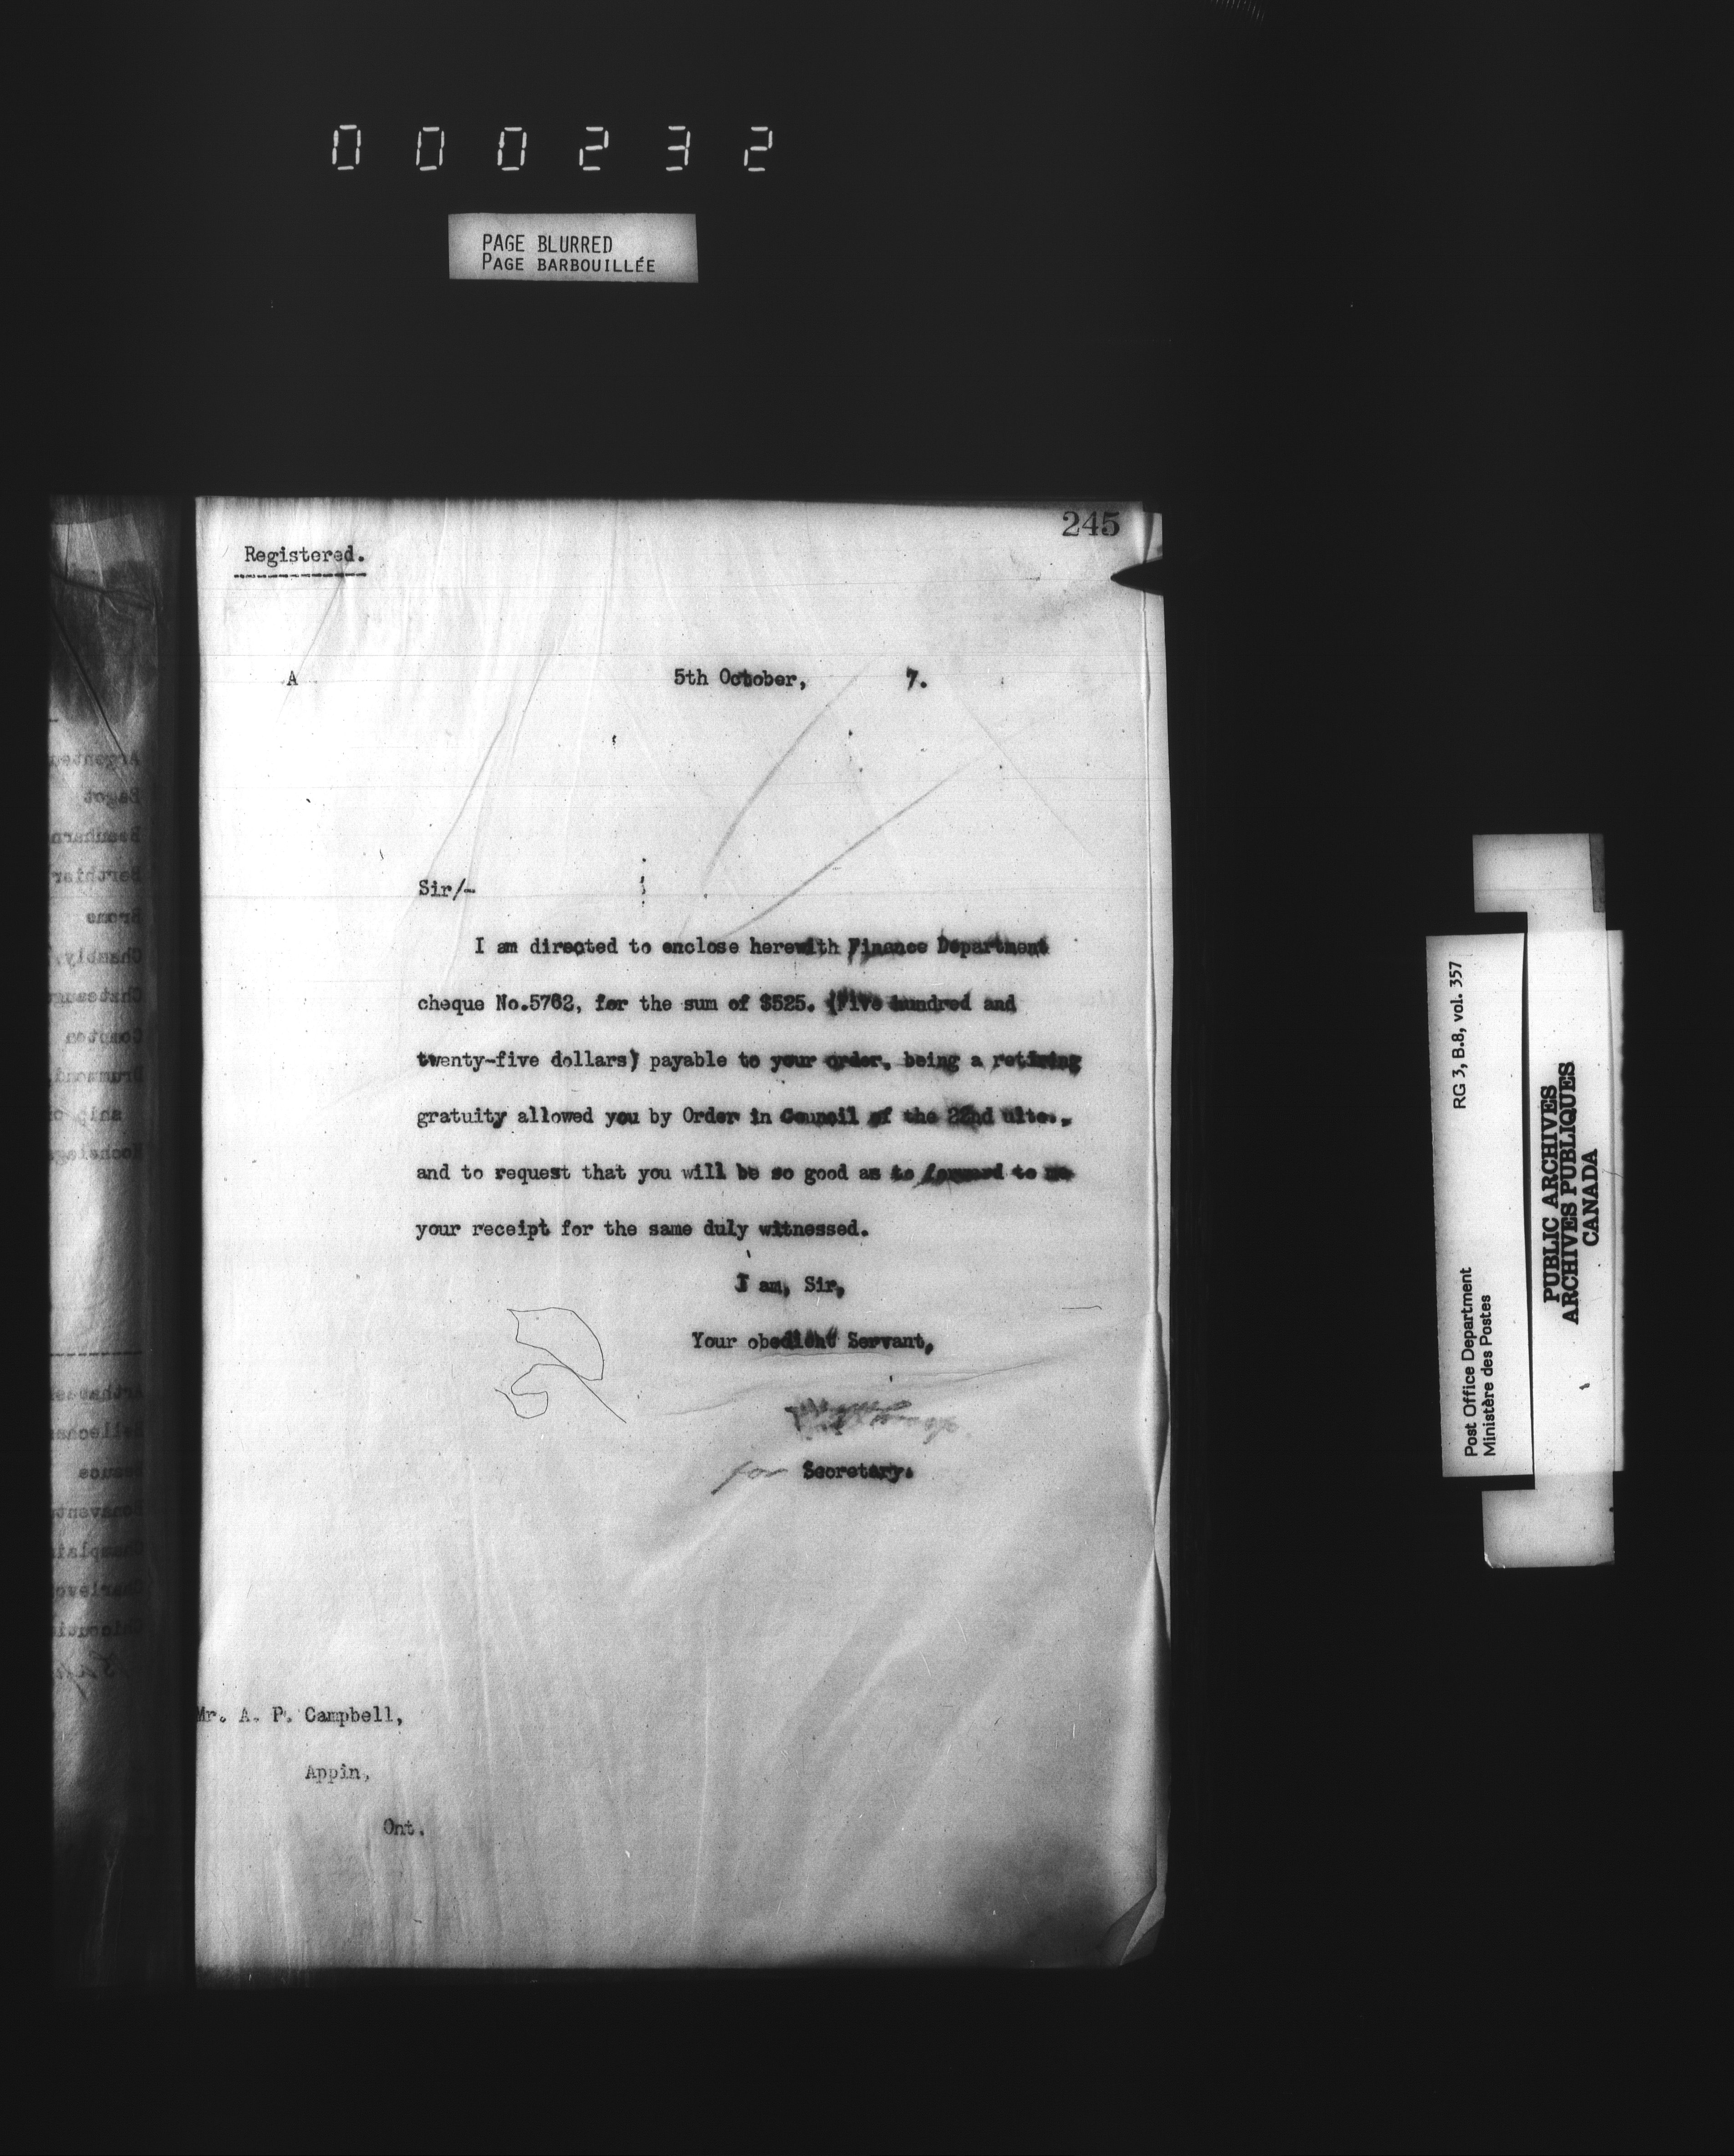 000232
PAGE BLURRED
PAGE BARBOUILLÉE
245
Registered.
A 5th October, 7.
Sir/-
I am directed to enclose herewith Finance Department
cheque No.5762, for the sum of $525. (Five hundred and
twenty-five dollars) payable to your order, being a retiring
gratuity allowed you by Order in Council of the 22nd ulto.,
and to request that you will be so good as to forward to me
your receipt for the same duly witnessed.
I am, Sir,
Your obedient Servant,
for Secretary.
Mr. A. P. Campbell,
Appin,
Ont.
RG 3, B.8, vol. 357
Post Office Department
Ministère des Postes
PUBLIC ARCHIVES
ARCHIVES PUBLIQUES
CANADA